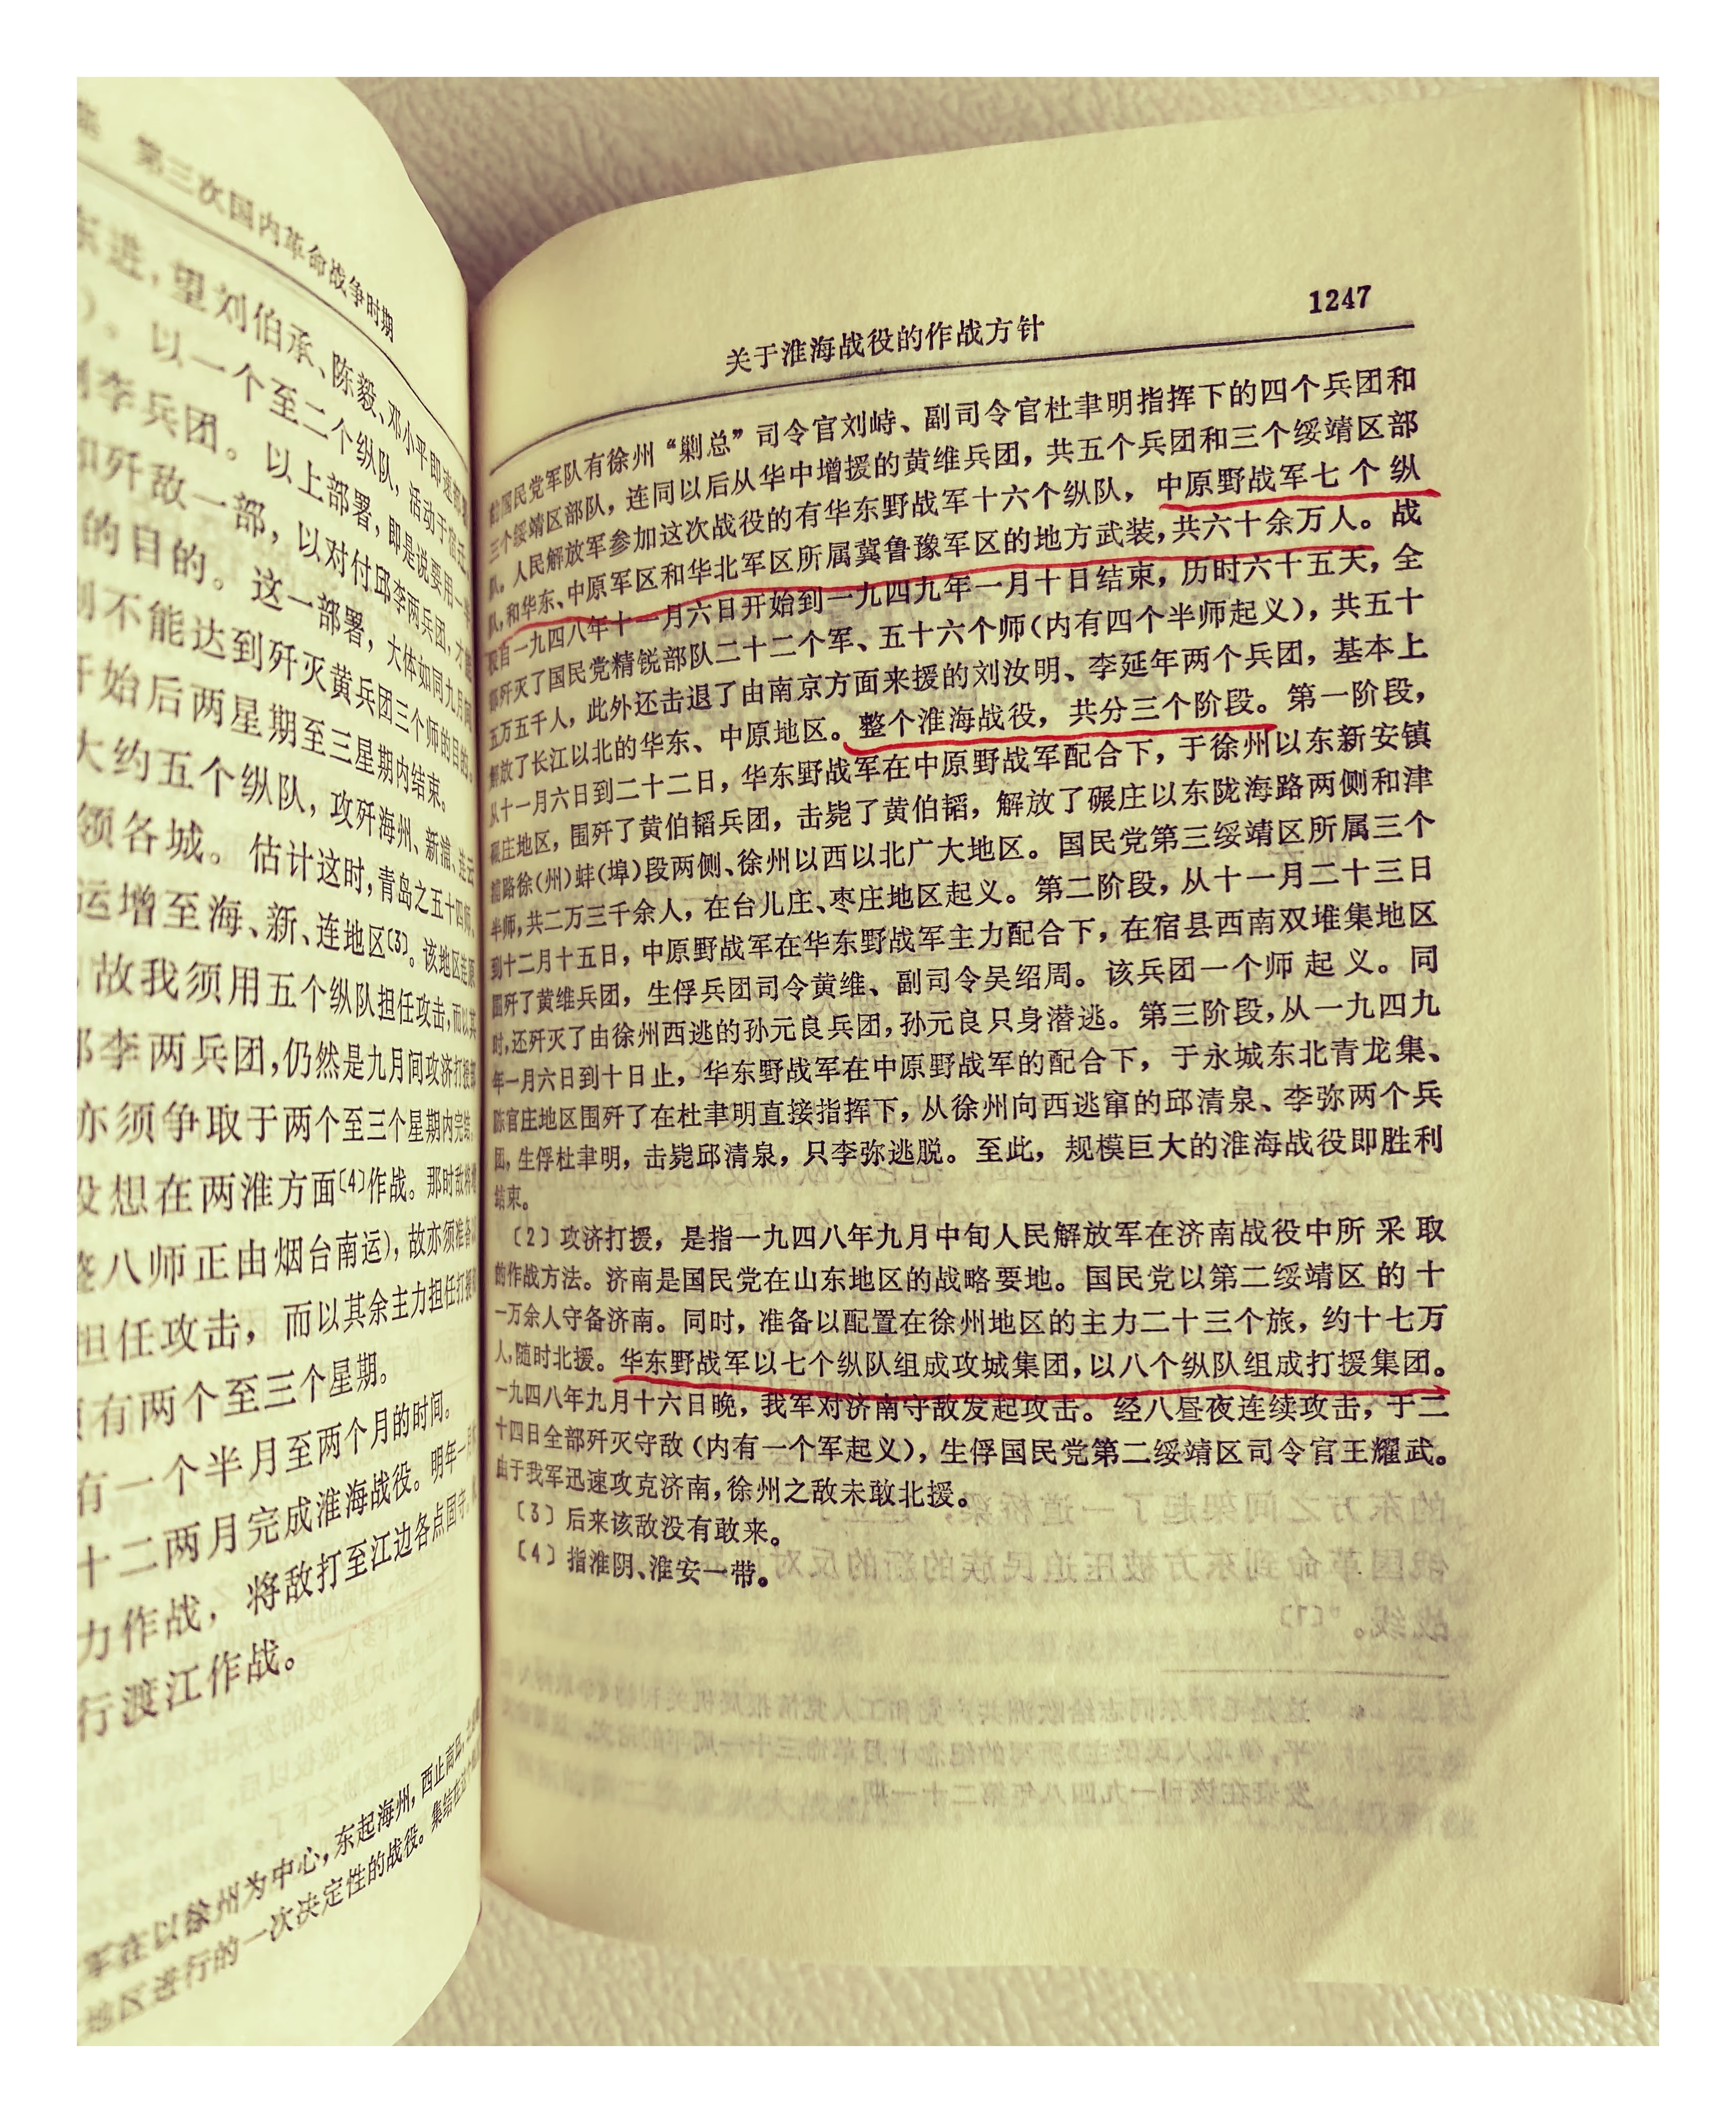 第三次国内革命战争时期
东进，望刘伯承、陈毅、邓小平即速部署
。以一个至二个纵队，活动于宿迁、
李兵团。以上部署，即是说要用一半
歼敌一部，以对付邱李两兵团，才能
的目的。这一部署，大体如同九月间
不能达到歼灭黄兵团三个师的目的。
开始后两星期至三星期内结束。
大约五个纵队，攻歼海州、新浦、连云
领各城。估计这时，青岛之五十四师、
运增至海、新、连地区〔3〕。该地区连原
故我须用五个纵队担任攻击，而以其
李两兵团，仍然是九月间攻济打援部
亦须争取于两个至三个星期内完结。
设想在两淮方面〔4〕作战。那时敌将增
八师正由烟台南运），故亦须准备以
担任攻击，而以其余主力担任打援
有两个至三个星期。
有一个半月至两个月的时间。
十二两月完成淮海战役。明年一月
力作战，将敌打至江边各点固守。
行渡江作战。
军在以徐州为中心，东起海州，西止商丘，
地区进行的一次决定性的战役。集结在这个
1247
关于淮海战役的作战方针
的国民党军队有徐州“剿总”司令官刘峙、副司令官杜聿明指挥下的四个兵团和
三个绥靖区部队，连同以后从华中增援的黄维兵团，共五个兵团和三个绥靖区部
队。人民解放军参加这次战役的有华东野战军十六个纵队，中原野战军七个纵
队，和华东、中原军区和华北军区所属冀鲁豫军区的地方武装，共六十余万人。战
役自一九四八年十一月六日开始到一九四九年一月十日结束，历时六十五天，全
部歼灭了国民党精锐部队二十二个军、五十六个师（内有四个半师起义），共五十
五万五千人，此外还击退了由南京方面来援的刘汝明、李延年两个兵团，基本上
解放了长江以北的华东、中原地区。整个淮海战役，共分三个阶段。第一阶段，
从十一月六日到二十二日，华东野战军在中原野战军配合下，于徐州以东新安镇
碾庄地区，围歼了黄伯韬兵团，击毙了黄伯韬，解放了碾庄以东陇海路两侧和津
浦路徐（州）蚌（埠）段两侧、徐州以西以北广大地区。国民党第三绥靖区所属三个
半师，共二万三千余人，在台儿庄、枣庄地区起义。第二阶段，从十一月二十三日
到十二月十五日，中原野战军在华东野战军主力配合下，在宿县西南双堆集地区
围歼了黄维兵团，生俘兵团司令黄维、副司令吴绍周。该兵团一个师起义。同
时，还歼灭了由徐州西逃的孙元良兵团，孙元良只身潜逃。第三阶段，从一九四九
年一月六日到十日止，华东野战军在中原野战军的配合下，于永城东北青龙集、
陈官庄地区围歼了在杜聿明直接指挥下，从徐州向西逃窜的邱清泉、李弥两个兵
团，生俘杜聿明，击毙邱清泉，只李弥逃脱。至此，规模巨大的淮海战役即胜利
结束。
〔2〕攻济打援，是指一九四八年九月中旬人民解放军在济南战役中所采取
的作战方法。济南是国民党在山东地区的战略要地。国民党以第二绥靖区的十
一万余人守备济南。同时，准备以配置在徐州地区的主力二十三个旅，约十七万
人，随时北援。华东野战军以七个纵队组成攻城集团，以八个纵队组成打援集团。
一九四八年九月十六日晚，我军对济南守敌发起攻击。经八昼夜连续攻击，于二
十四日全部歼灭守敌（内有一个军起义），生俘国民党第二绥靖区司令官王耀武。
由于我军迅速攻克济南，徐州之敌未敢北援。
〔3〕后来该敌没有敢来。
〔4〕指淮阴、淮安一带。